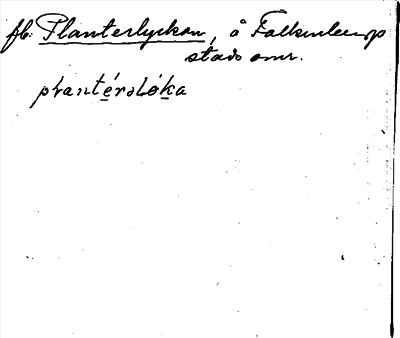 fb. Planterlyckan, å Falkenbergs
stads omr.
plantérslóka